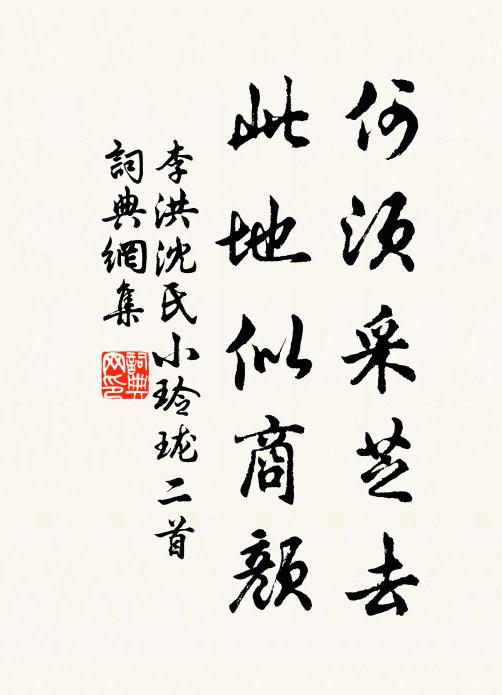 何须采芝去
此地似商顏
李洪沈氏小玲瓏二首
詞典網集
詞典网印